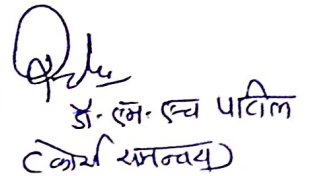 डॉ. एम. एच पाटील
(कोर्स समन्वय)